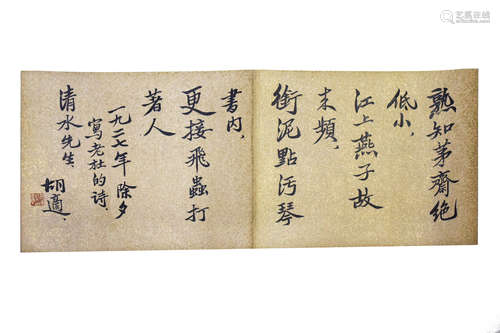 熟知茅齋絕
低小，
江上燕子故
来頻，
銜泥點污琴
書内，
更接飛蟲打
著人
一九二七年除夕
寫老杜的詩，
清水先生，
胡適，
艺狐在线